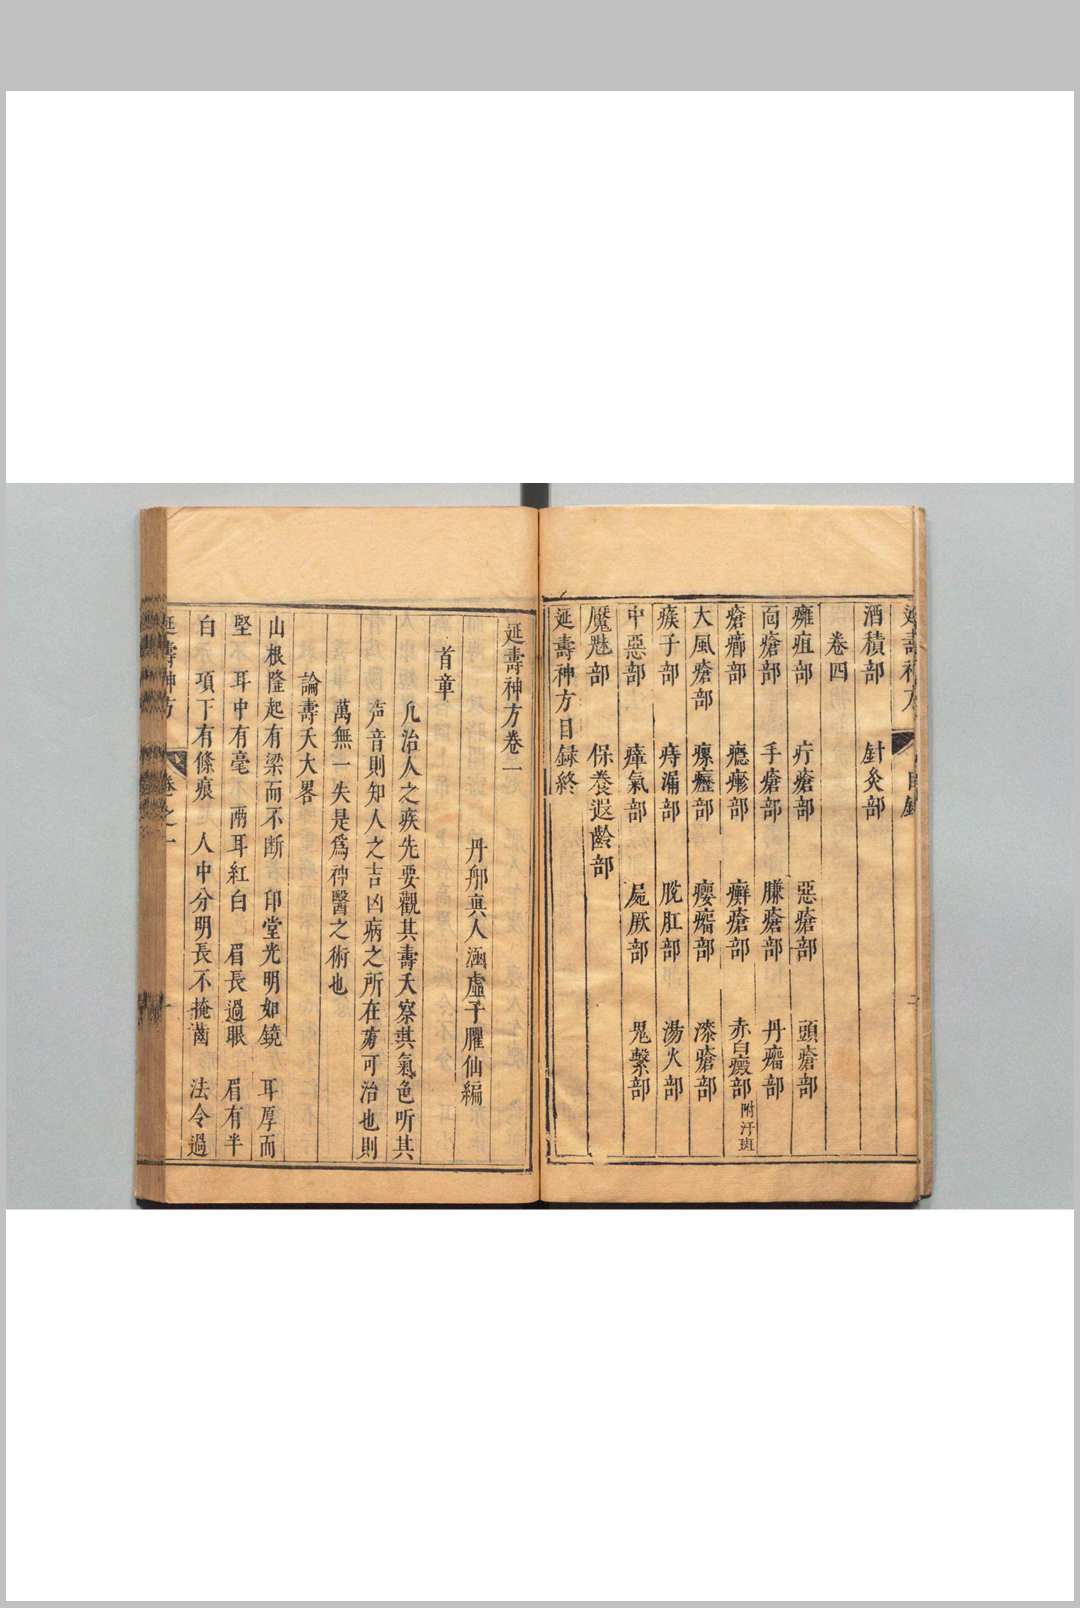 延壽神方 目錄
酒積部 針灸部
卷四
癰疽部 疔瘡部 惡瘡部 頭瘡部
面瘡部 手瘡部 臁瘡部 丹瘤部
瘡癤部 癮瘮部 癬瘡部 赤白癜部附汗斑
大風瘡部 瘰癧部 癭瘤部 漆瘡部
㾽子部 痔漏部 脫肛部 湯火部
中惡部 瘴氣部 屍厥部 鬼擊部
魘魅部 保養遐齡部
延壽神方目録終
延壽神方卷一
丹丘 人 涵虛子臞仙編
首章
凡治人之疾先要觀其壽夭察其氣色听其
声音則知人之吉凶病之所在 可治也則
萬無一失是爲神醫之術也
論壽夭大畧
山根隆起有梁而不断 印堂光明如鏡 耳厚而
堅 耳中有毫 两耳紅白 眉長過眼 眉有半
白 項下有條痕 人中分明長不掩齒 法令過
延壽神方 卷之一